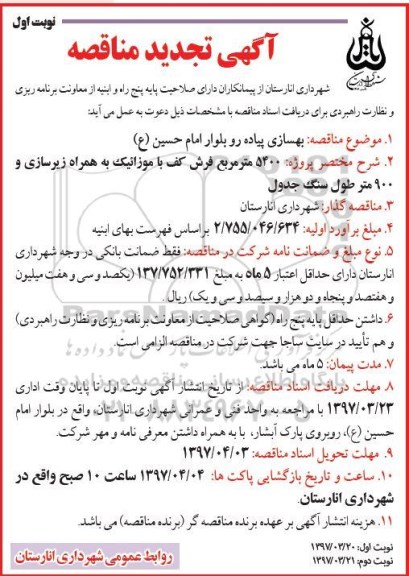 نوبت اول
آگهی تجدید مناقصه
شهرداری انارستان از پیمانکاران دارای صلاحیت پایه پنج راه و ابنیه از معاونت برنامه ریزی
و نظارت راهبردی برای دریافت اسناد مناقصه با مشخصات ذیل دعوت به عمل می آید:
۱. موضوع مناقصه: بهسازی پیاده رو بلوار امام حسین (ع)
۲. شرح مختصر پروژه: ۵۴۰۰ مترمربع فرش کف با موزائیک به همراه زیرسازی و
۹۰۰ متر طول سنگ جدول
۳. مناقصه گذار: شهرداری انارستان
۴. مبلغ برآورد اولیه: ۲/۷۵۵/۰۴۶/۶۳۴ براساس فهرست بهای ابنیه
۵. نوع مبلغ و ضمانت نامه شرکت در مناقصه: فقط ضمانت بانکی در وجه شهرداری
انارستان دارای حداقل اعتبار ۵ ماه به مبلغ ۱۳۷/۷۵۲/۳۳۱ (یکصد و سی و هفت میلیون
و هفتصد و پنجاه و دو هزار و سیصد و سی و یک) ریال .
۶. داشتن حداقل پایه پنج راه (گواهی صلاحیت از معاونت برنامه ریزی و نظارت راهبردی)
و هم تأیید در سایت ساجا جهت شرکت در مناقصه الزامی است.
۷. مدت پیمان: ۵ ماه می باشد.
۸. مهلت دریافت اسناد مناقصه: از تاریخ انتشار آگهی نوبت اول تا پایان وقت اداری
۱۳۹۷/۰۳/۲۳ با مراجعه به واحد فنی و عمرانی شهرداری انارستان، واقع در بلوار امام
حسین (ع)، روبروی پارک آبشار، با به همراه داشتن معرفی نامه و مهر شرکت.
۹. مهلت تحویل اسناد مناقصه: ۱۳۹۷/۰۴/۰۳
۱۰. ساعت و تاریخ بازگشایی پاکت ها: ۱۳۹۷/۰۴/۰۴ ساعت ۱۰ صبح واقع در
شهرداری انارستان.
۱۱. هزینه انتشار آگهی بر عهده برنده مناقصه گر (برنده مناقصه) می باشد.
نوبت اول: ۱۳۹۷/۰۳/۲۰
نوبت دوم: ۱۳۹۷/۰۳/۲۱
روابط عمومی شهرداری انارستان